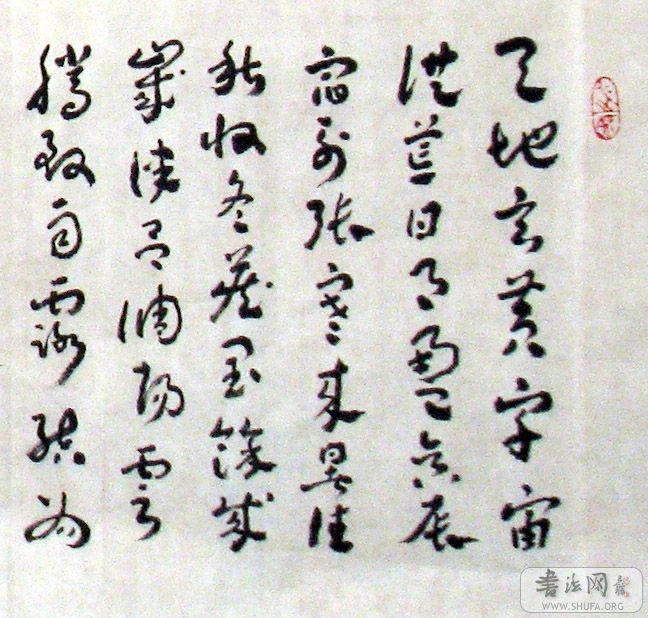 天地玄黄宇宙
洪荒日月盈昃辰
宿列张寒来暑往
秋收冬藏闰馀成
岁律吕调阳云
腾致雨露结为
书法网
WWW.SHUFA.ORG